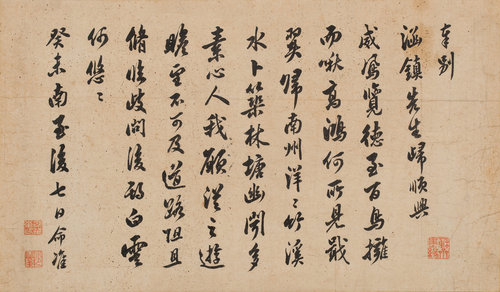 奉别
涵鎮先生歸順興
威鳳覽德至百鳥擁
而啾高鴻何所見戢
翼歸南州洋〻竹溪
水卜築林塘幽聞多
素心人我願從之遊
瞻望不可及道路阻且
脩臨歧問後期白雲
何悠〻
癸未南至後七日命准